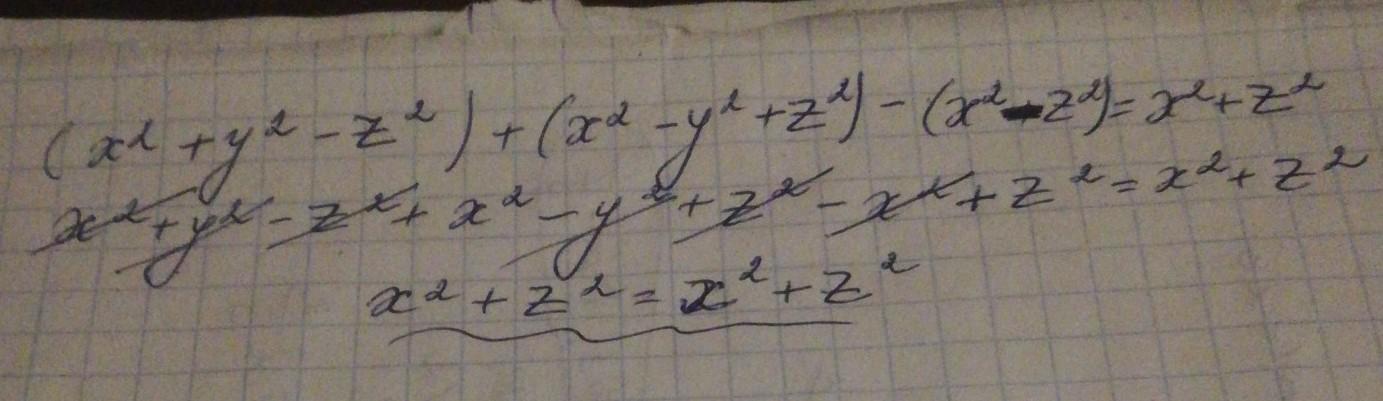 (x² + y² - z²) + (x² - y² + z²) - (x² - z²) = x² + z²
x² + y² - z² + x² - y² + z² - x² + z² = x² + z²
x² + z² = x² + z²